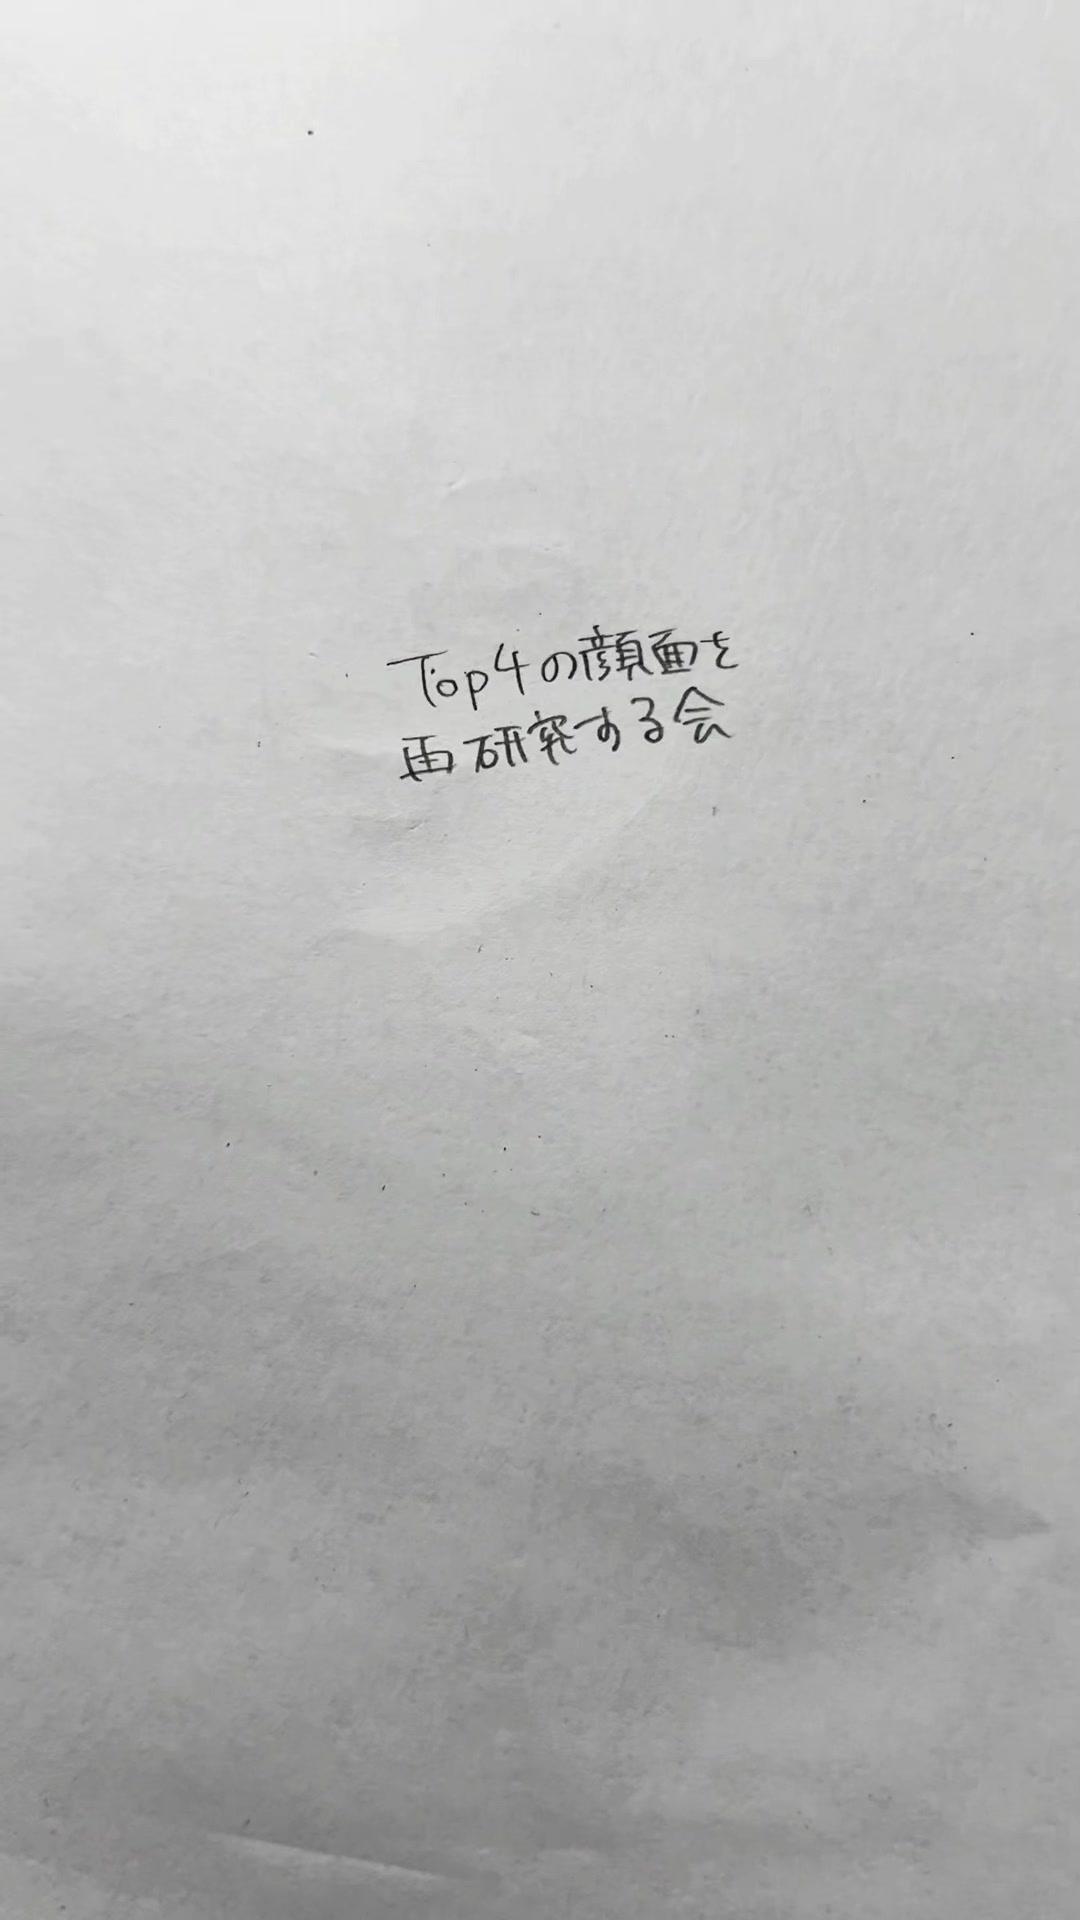 Top4の顔面を
再研究する会